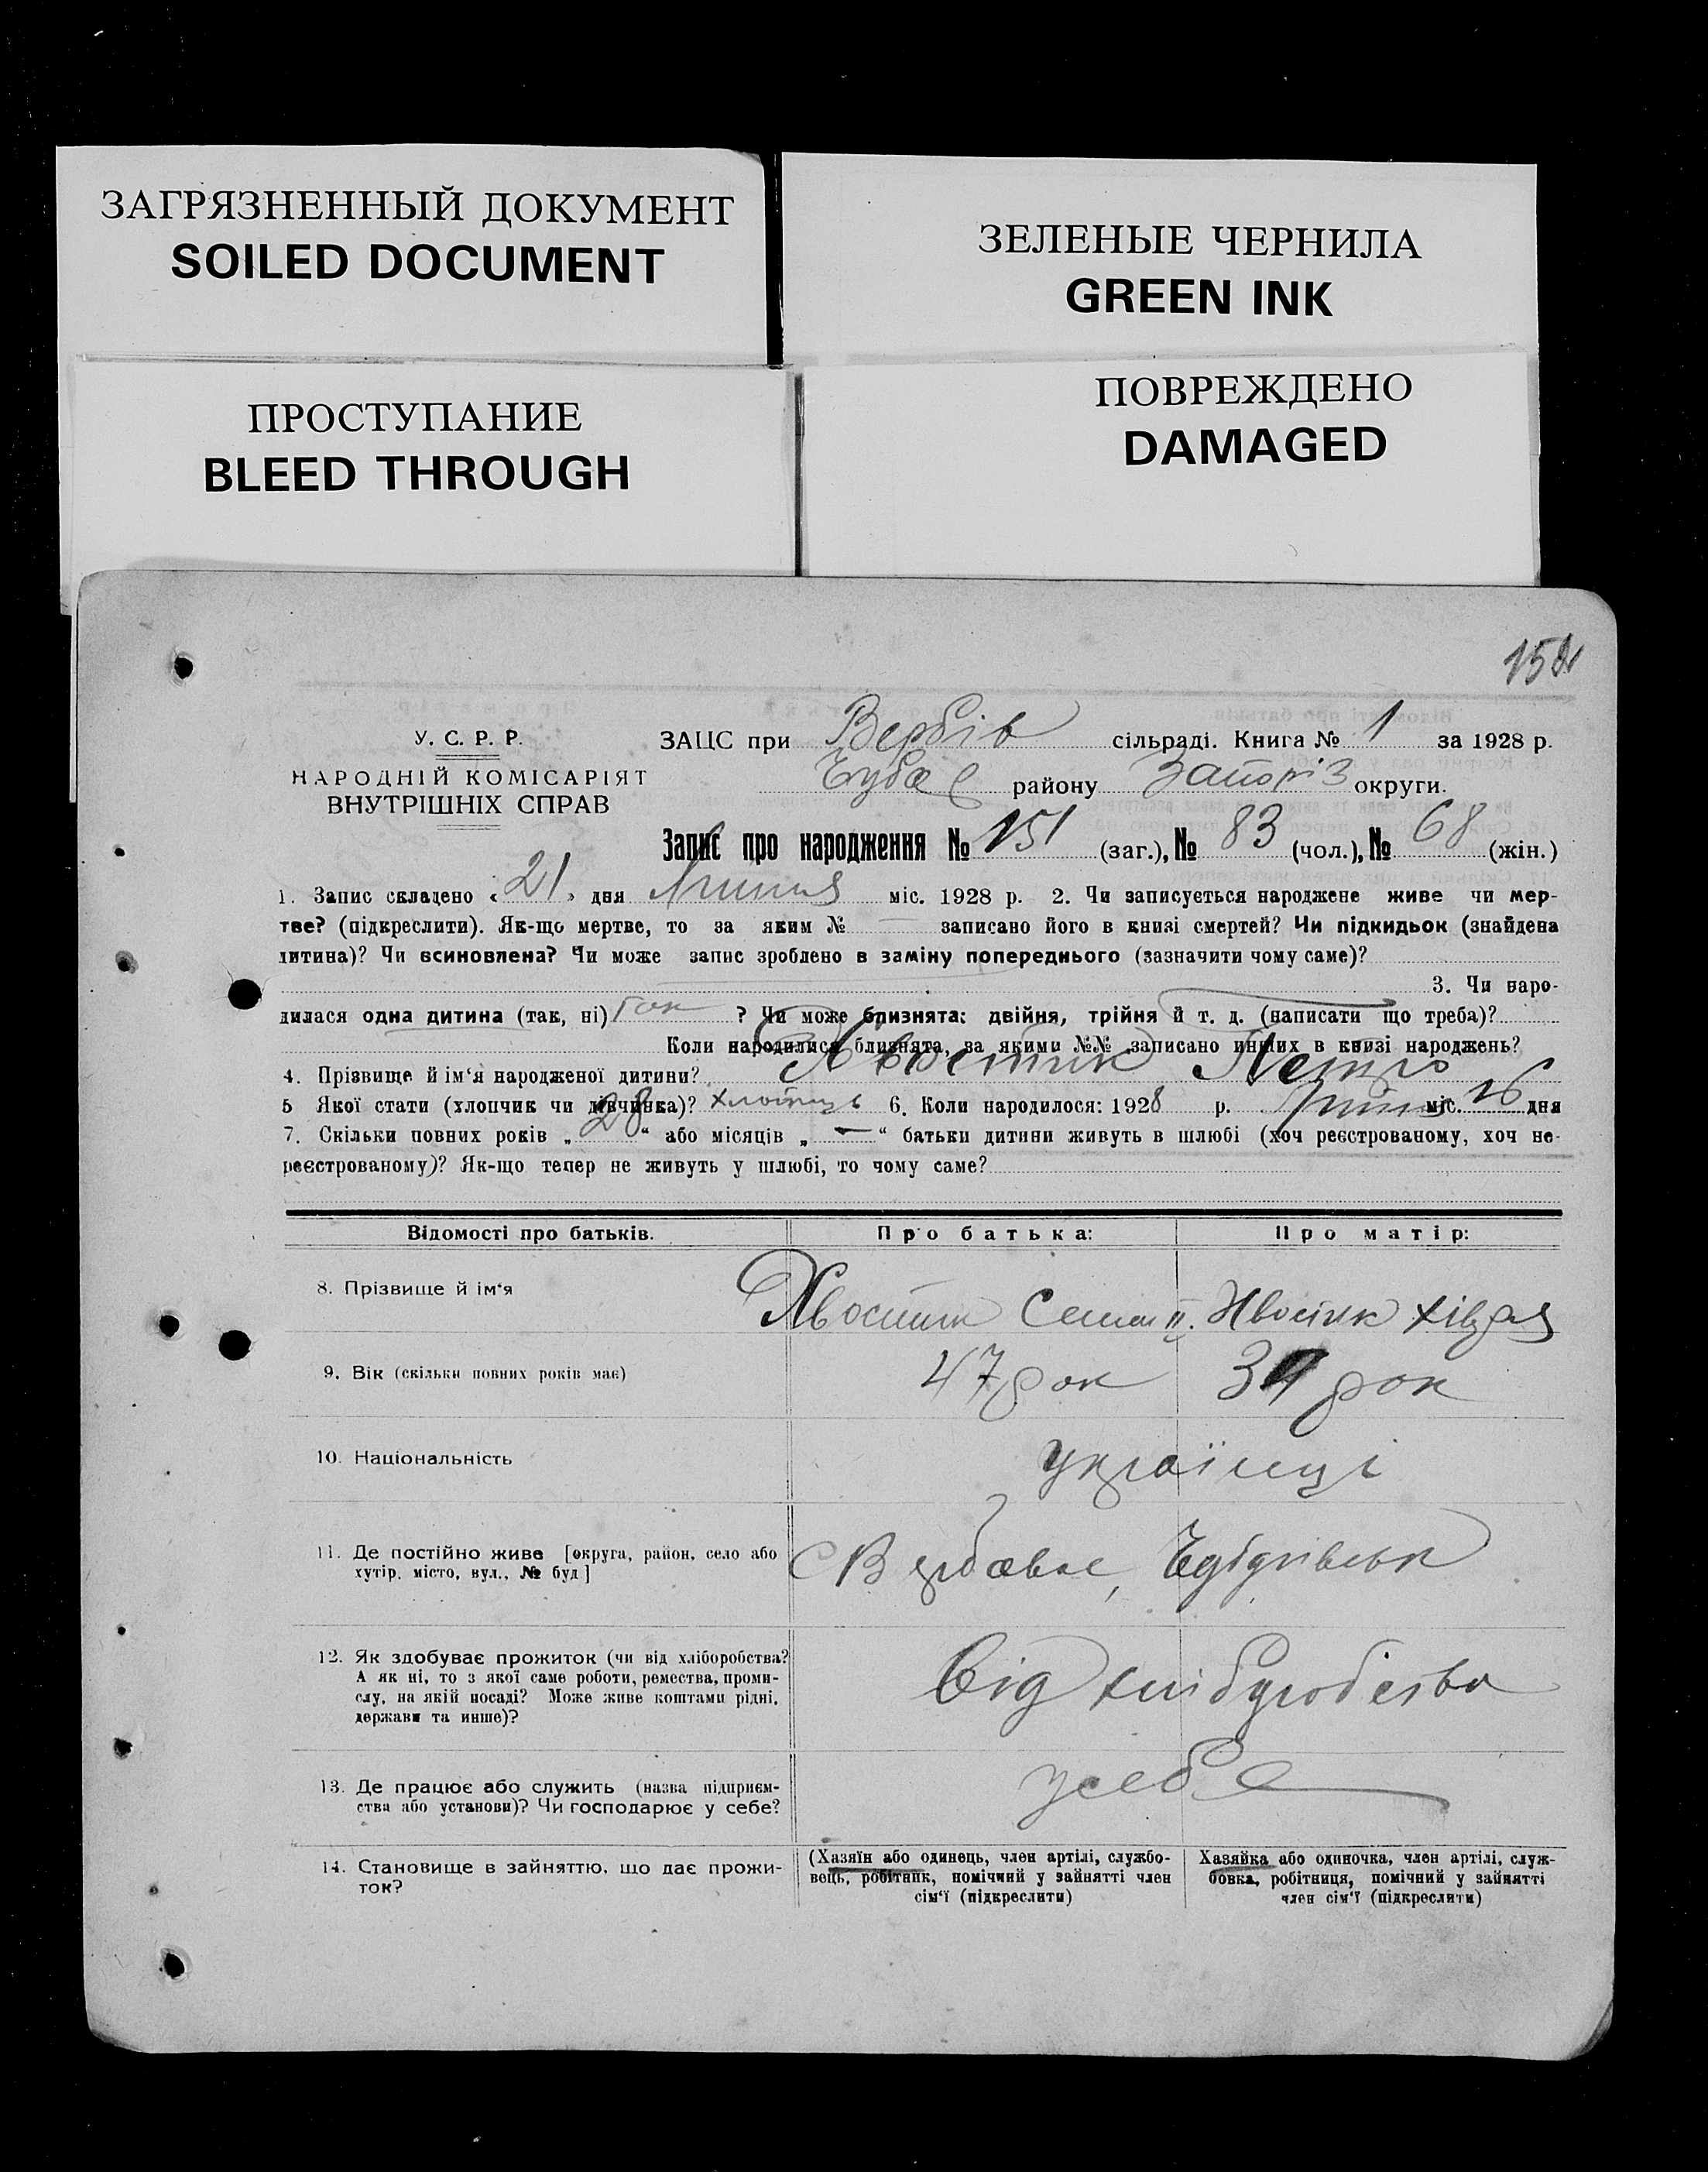 ЗАГРЯЗНЕННЫЙ ДОКУМЕНТ
SOILED DOCUMENT
ЗЕЛЕНЫЕ ЧЕРНИЛА
GREEN INK
ПРОСТУПАНИЕ
BLEED THROUGH
ПОВРЕЖДЕНО
DAMAGED
У. С. Р. Р.
НАРОДНІЙ КОМІСАРІЯТ
ВНУТРІШНІХ СПРАВ
ЗАЦС при Вербів сільраді. Книга № 1 за 1928 р.
району Запоріз округи.
Запис про народження № 151 (заг.), № 83 (чол.), № 68 (жін.)
1. Запис складено „21" дня Липня міс. 1928 р. 2. Чи записується народжене живе чи мер-
тве? (підкреслити). Як-що мертве, то за яким № — записано його в книзі смертей? Чи підкидьок (знайдена
дитина)? Чи всиновлена? Чи може запис зроблено в заміну попереднього (зазначити чому саме)?
3. Чи наро-
дилася одна дитина (так, ні) так ? Чи може близнята: двійня, трійня й т. д. (написати що треба)?
Коли народилися близнята, за якими №№ записано инших в книзі народжень?
4. Прізвище й ім‘я народженої дитини? Хвостик Петро
5 Якої стати (хлопчик чи дівчинка)? хлопець 6. Коли народилося: 1928 р. Липня міс. 16 дня
7. Скільки повних років „ 28 “ або місяців „ — “ батьки дитини живуть в шлюбі (хоч реєстрованому, хоч не-
реєстрованому)? Як-що тепер не живуть у шлюбі, то чому саме?
Відомості про батьків. Про батька: Про матір:
8. Прізвище й ім‘я Хвостик Семен Хвостик Хівря
9. Вік (скільки повних років має) 47 рок 39 рок
10. Національність українці
11. Де постійно живе [округа, район, село або
хутір, місто, вул., № буд]
12. Як здобуває прожиток (чи від хліборобства?
А як ні, то з якої саме роботи, ремества, проми-
слу, на якій посаді? Може живе коштами рідні,
держави та инше)?
від хлібуробства
13. Де працює або служить (назва підприєм-
ства або установи)? Чи господарює у себе?
у себе
14. Становище в зайняттю, що дає прожи-
ток?
(Хазяїн або одинець, член артілі, службо-
вець, робітник, помічний у зайнятті член
сім‘ї (підкреслити)
Хазяйка або одиночка, член артілі, служ-
бовка, робітниця, помічний у зайнятті
член сім‘ї (підкреслити)